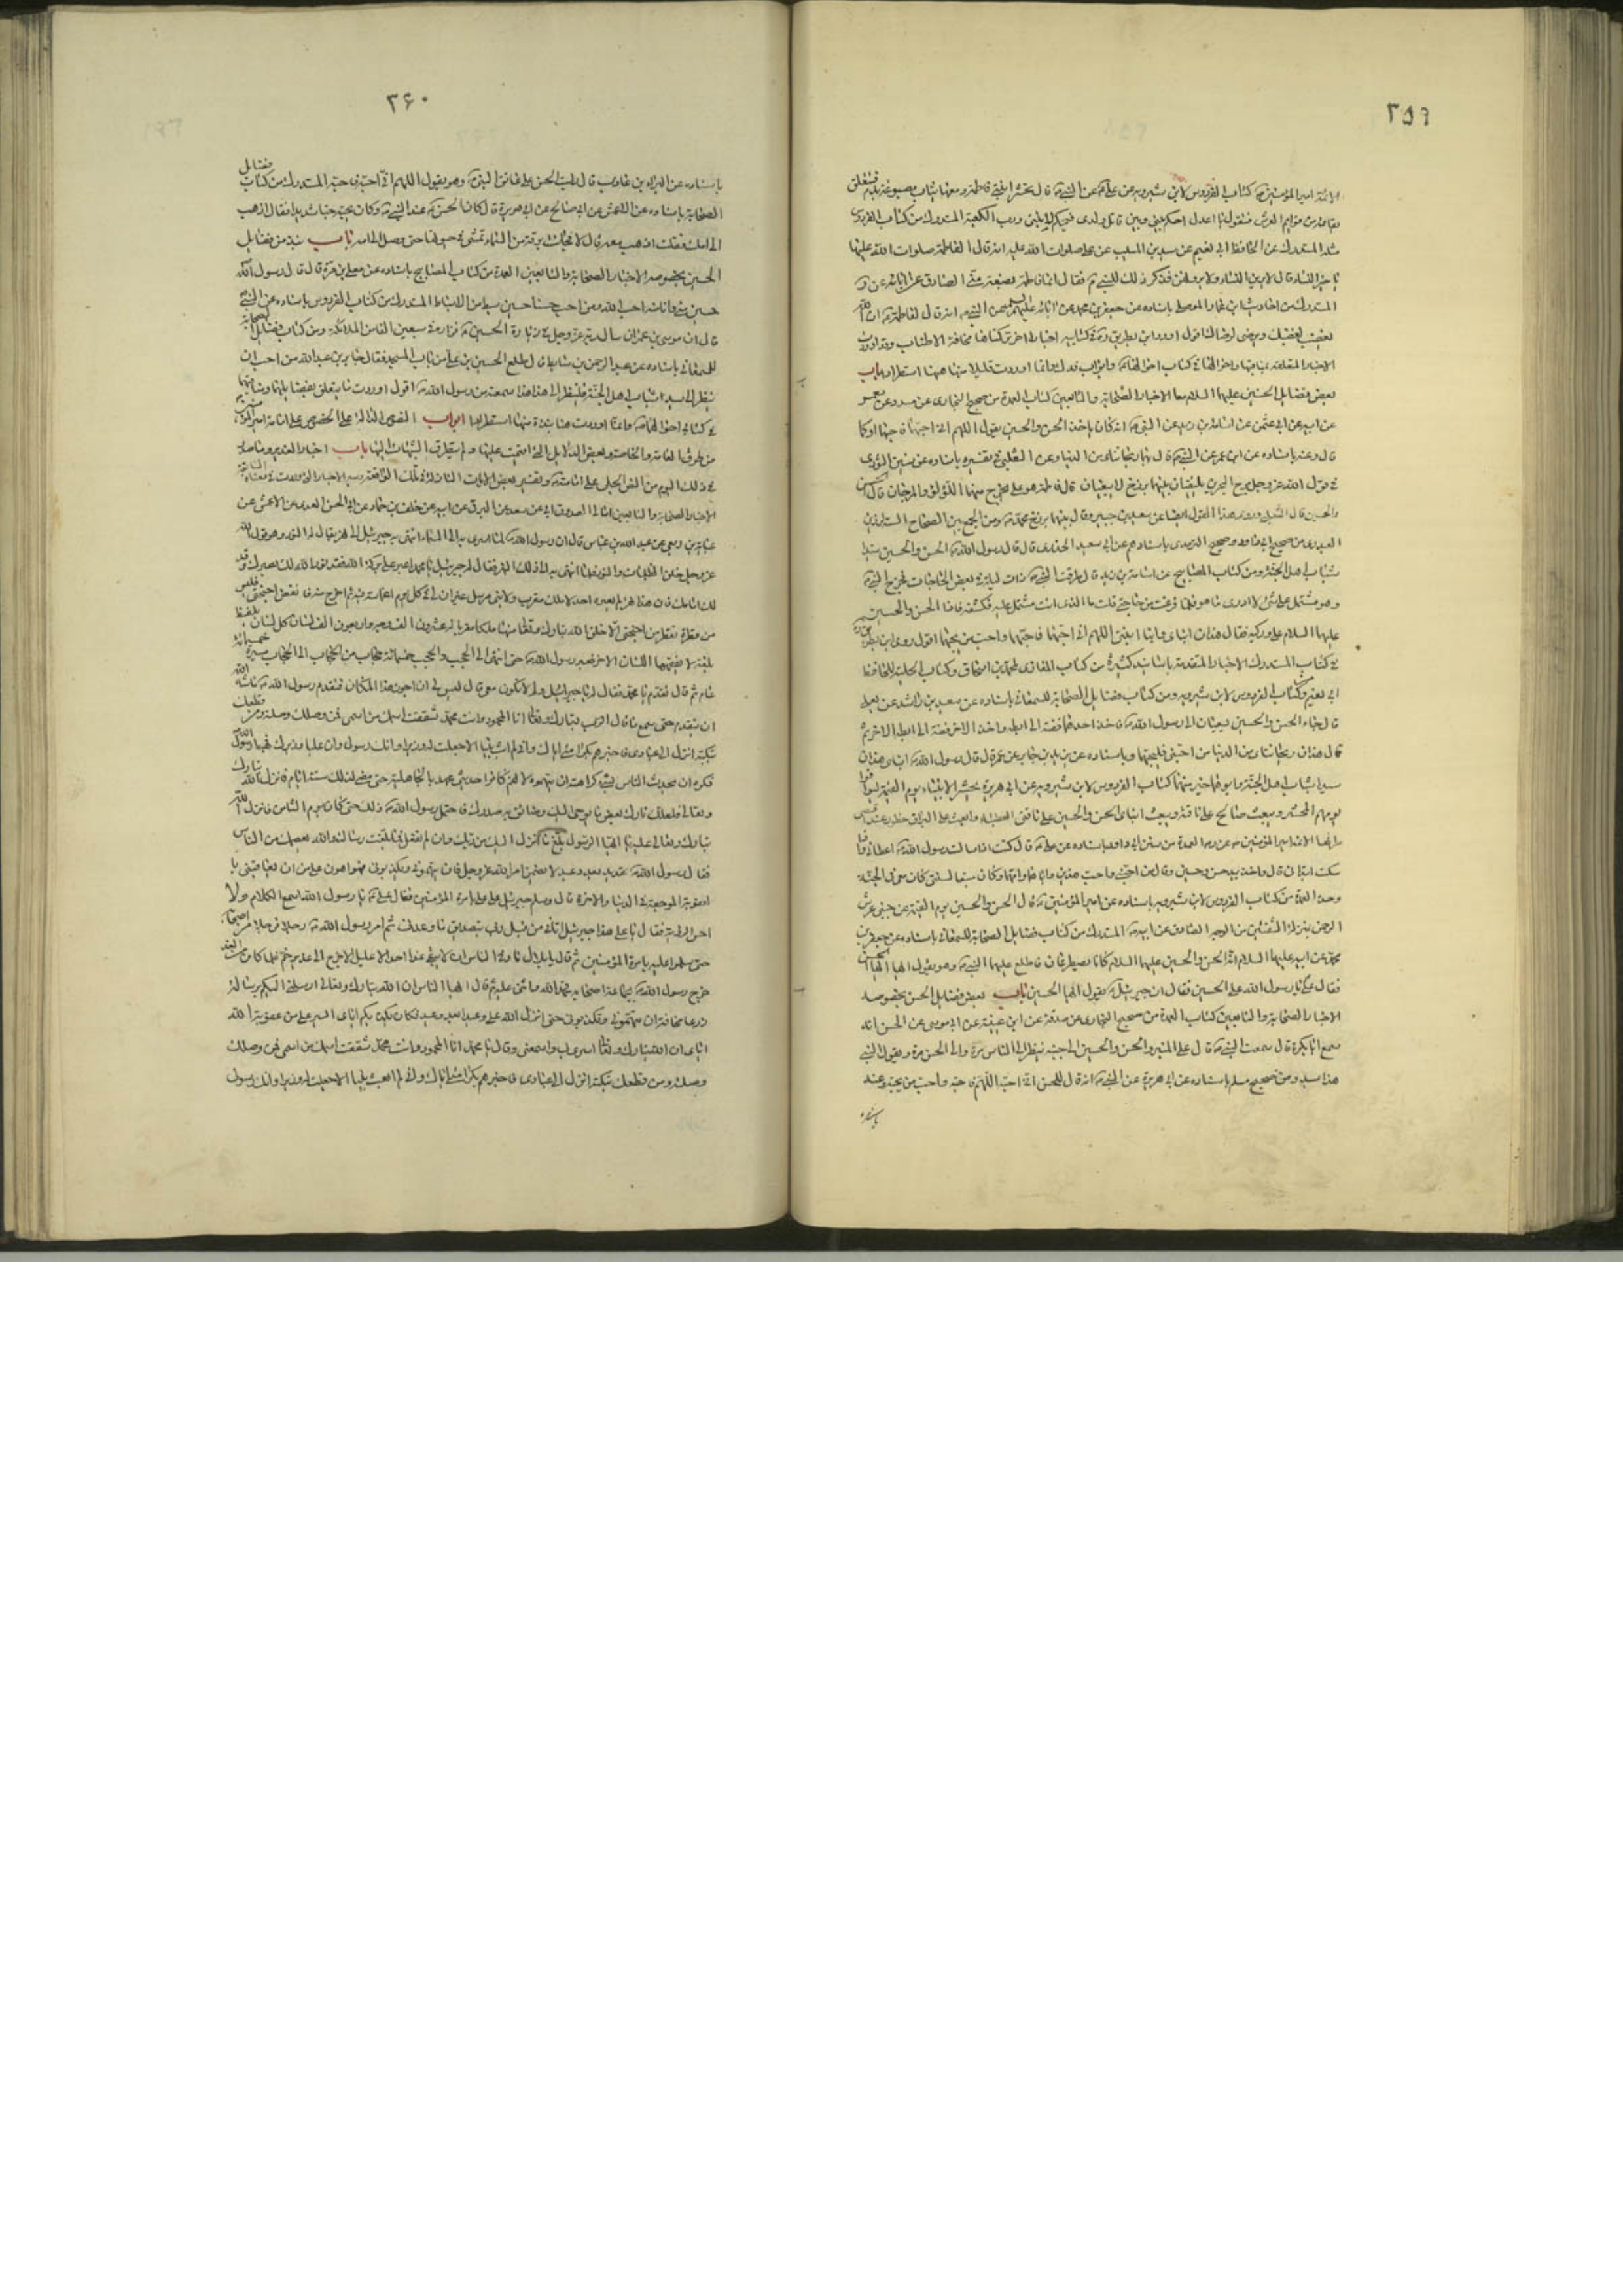 ٣٥٩
الائمة امير المؤمنين كتاب الفردوس لابن شيرويه عن على عن النبى قال تحشر ابنتى فاطمة ومعها ثياب مصبوغة بدم فتتعلق
بقائمة من قوائم العرش فتقول يا عدل احكم بينى وبين قاتل ولدى فيحكم لابنتى ورب الكعبة المستدرك من كتاب الفردوس
مثله المستدرك عن الحافظ ابى نعيم عن سعيد بن المسيب عن على صلوات الله عليه انه قال لفاطمة صلوات الله عليها
ما خير النساء قال لا يرين النساء ولا يرونهن فذكر ذلك للنبى فقال انما فاطمة بضعة منى الصادق عن ابائه عن
المستدرك من احاديث ابن عمار الموصلى باسناده عن جعفر بن محمد عن ابائه عليهم السلام عن النبى انه قال لفاطمة ان الله
يغضب لغضبك ويرضى لرضاك اقول اورد ابن بطريق فى كتابيه اخبارا اخر تركناها مخافة الاطناب وقد اوردت
باب
بعض فضايل الحسنين عليهما السلام معا الاخبار الصحابة والتابعين كتاب العمدة من صحيح البخارى عن مسدد عن معتمر
عن ابيه عن ابى عثمن عن اسامة بن زيد عن النبى انه كان ياخذ الحسن والحسين يقول اللهم انى احبهما فاحبهما او كما
قال وعنه باسناده عن ابن عمر عن النبى قال هما ريحانتاى من الدنيا وعن الثعلبى فى تفسيره باسناده عن سفين الثورى
فى قول الله عز وجل مرج البحرين يلتقيان بينهما برزخ لا يبغيان قال فاطمة وعلى يخرج منهما اللؤلؤ والمرجان قال الحسن
والحسين قال الثعلبى وروى هذا القول ايضا عن سعيد بن جبير وقال بينهما برزخ محمد ومن الجمع بين الصحاح الستة لرزين
العبدرى من صحيح ابى داود وصحيح الترمذى باسنادهم عن ابى سعيد الخدرى قال قال رسول الله الحسن والحسين سيدا
شباب اهل الجنة ومن كتاب المصابيح عن اسامة بن زيد قال طرقت النبى ذات ليلة فى بعض الحاجات فخرج النبى
وهو مشتمل على شئ لا ادرى ما هو فلما فرغت من حاجتى قلت ما الذى انت مشتمل عليه فكشفه فاذا الحسن والحسين
عليهما السلام على وركيه فقال هذان ابناى وابنا ابنتى اللهم انى احبهما فاحبهما واحب من يحبهما اقول روى ابن بطريق
فى كتاب المستدرك الاخبار المتقدمة باسانيد كثيرة من كتاب المغازى لمحمد بن اسحاق وكتاب الحلية للحافظ
ابى نعيم وكتاب الفردوس لابن شيرويه ومن كتاب فضايل الصحابة للسمعانى باسناده عن سعيد بن راشد عن يعلى
قال جاء الحسن والحسين يسعيان الى رسول الله فاخذ احدهما فضمه الى ابطه واخذ الاخر فضمه الى ابطه الاخر ثم
قال هذان ريحانتاى من الدنيا من احبنى فليحبهما وباسناده
سيدا شباب اهل الجنة وابوهما خير منهما كتاب الفردوس لابن شيرويه عن ابى هريرة يحشر الانبياء يوم القيمة ليوافوا
يومهم المحشر ويبعث صالح على ناقته ويبعث ابناى الحسن والحسين على ناقتى العضباء وابعث على البراق خطوها عند اقصى
طرفها
سكت ابتدانى قال واخذ بيد حسن وحسين وقال من احبنى واحب هذين واباهما وامهما وكان متبعا لسنتى كان معى فى الجنة
ومن العمدة من كتاب الفردوس لابن شيرويه باسناده عن امير المؤمنين قال الحسن والحسين يوم القيمة عن جنبى عرش
الرحمن بمنزلة الشنفين من الوجه الصادق عن ابيه المستدرك من كتاب فضايل الصحابة للسمعانى باسناده عن جعفر بن
محمد عن ابيه عليهما السلام ان الحسن والحسين عليهما السلام كانا يصطرعان فاطلع عليهما النبى وهو يقول ايها الحسن
فقال على يا رسول الله على الحسين فقال ان جبرئيل يقول ايها الحسين باب بعض فضايل الحسن بخصوصه
الاخبار الصحابة والتابعين كتاب العمدة من صحيح البخارى عن صدقة عن ابن عيينة عن ابى موسى عن الحسن انه
سمع ابا بكرة قال سمعت النبى قال على المنبر والحسن والحسين الى جنبه ينظر الى الناس مرة والى الحسن مرة ويقول ابنى
هذا سيد ومن صحيح مسلم باسناده عن ابى هريرة عن النبى انه قال للحسن انى احبه اللهم فاحبه واحب من يحبه وعنه
باسناده
٣۶٠
باسناده عن البراء بن عازب قال رايت الحسن على عاتق النبى وهو يقول اللهم انى احبه فاحبه المستدرك من كتاب فضايل
الصحابة باسناده عن الاعمش عن ابى صالح عن ابى هريرة قال كان الحسن عند النبى وكان يحبه حبا شديدا فقال اذهب
الى امك فقلت اذهب معه قال لا فجاءت برقة من السماء فمشى فى ضوئها حتى وصل الى امه باب نبذ من فضايل
الحسين بخصوصه الاخبار الصحابة والتابعين العمدة من كتاب المصابيح باسناده عن يعلى بن مرة قال قال رسول الله
حسين منى وانا منه احب الله من احب حسينا حسين سبط من الاسباط المستدرك من كتاب الفردوس باسناده عن النبى
قال ان موسى بن عمران سال ربه عز وجل فى زيارة الحسين فزاره فى سبعين الفا من الملائكة ومن كتاب فضايل الصحابة
للسمعانى باسناده عن عبد الرحمن بن سابط قال طلع الحسين بن على من باب المسجد فقال جابر بن عبد الله من احب ان
ينظر الى سيد شباب اهل الجنة فلينظر الى هذا هكذا سمعته من رسول الله اقول اوردت ما يتعلق بفضايلهما ومناقبهما
ابواب النصوص الدالة على الخصوص على امامة امير المؤمنين
من طرق العامة والخاصة وبعض الدلايل التى اقيمت عليها ولم يتطرق الشبهات اليها باب اخبار الغدير وما صدر
فى ذلك اليوم من النص الجلى على امامته وتفسير بعض الايات النازلة فى تلك الواقعة
عباية بن ربعى عن عبد الله بن عباس قال ان رسول الله لما اسرى به الى السماء انتهى به جبرئيل الى نهر يقال له النور وهو قول الله
عز وجل خلق الظلمات والنور فلما انتهى به الى ذلك النهر فقال له جبرئيل يا محمد اعبر على بركة الله فقد نور الله لك بصرك ومد
لك امامك فان هذا نهر لم يعبره احد لا ملك مقرب ولا نبى مرسل غير ان لى فى كل يوم اغتماسة فيه ثم اخرج منه فانفض اجنحتى فليس
من قطرة تقطر من اجنحتى الا خلق الله تبارك وتعالى منها ملكا مقربا له عشرون الف وجه واربعون الف لسان كل لسان يلفظ
بلغة لا يفقهها اللسان الاخر فعبر رسول الله حتى انتهى الى الحجب والحجب خمسمائة حجاب من الحجاب الى الحجاب مسيرة خمسمائة
عام ثم قال تقدم يا محمد فقال له يا جبرئيل ولم لا تكون معى قال ليس لى ان اجوز هذا المكان فتقدم رسول الله ما شاء الله
ان يتقدم حتى سمع ما قال الرب تبارك وتعالى انا المحمود وانت محمد شققت اسمك من اسمى فمن وصلك وصلته ومن قطعك
بتكته انزل الى عبادى فاخبرهم بكرامتى اياك وانى لم ابعث نبيا الا جعلت له وزيرا وانك رسولى وان عليا وزيرك فهبط رسول الله
فكره ان يحدث الناس بشئ كراهة ان يتهموه لانهم كانوا حديثى عهد بالجاهلية حتى مضى لذلك ستة ايام فانزل الله تبارك
وتعالى فلعلك تارك بعض ما يوحى اليك وضائق به صدرك فاحتمل رسول الله ذلك حتى كان يوم الثامن فانزل الله
تبارك وتعالى عليه يا ايها الرسول بلغ ما انزل اليك من ربك وان لم تفعل فما بلغت رسالته والله يعصمك من الناس
فقال رسول الله تهديد بعد وعيد لامضين امر الله عز وجل فان يتهمونى ويكذبونى فهو اهون على من ان يعاقبنى
العقوبة الموجعة فى الدنيا والاخرة قال وسلم جبرئيل على على بامرة المؤمنين فقال على يا رسول الله اسمع الكلام ولا
احس الرؤية فقال يا على هذا جبرئيل اتانى من قبل ربى بتصديق ما وعدنى ثم امر رسول الله رجلا فرجلا من اصحابه
حتى سلموا عليه بامرة المؤمنين ثم قال يا بلال ناد فى الناس ان لا يبقى غدا احد الا عليل الا خرج الى غدير خم فلما كان من الغد
خرج رسول الله بجماعة اصحابه فحمد الله واثنى عليه ثم قال ايها الناس ان الله تبارك وتعالى ارسلنى اليكم برسالة
ذرعا مخافة ان تتهمونى وتكذبونى حتى انزل الله على وعيدا بعد وعيد فكان تكذيبكم اياى ايسر على من عقوبة الله
اياى ان الله تبارك وتعالى اسرى بى واسمعنى وقال يا محمد انا المحمود وانت محمد شققت اسمك من اسمى فمن وصلك
وصلته ومن قطعك بتكته انزل الى عبادى فاخبرهم بكرامتى اياك وانى لم ابعث نبيا الا جعلت له وزيرا وانك رسولى